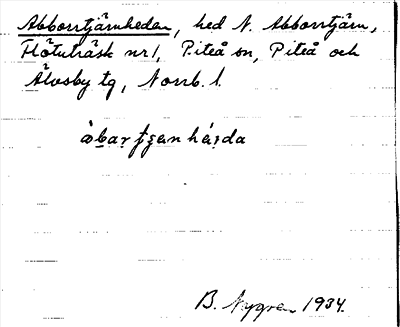 Abborrtjärnheden, hed N. Abborrtjärn,
Flötuträsk nr 1, Piteå sn, Piteå och
Älvsby tg, Norrb. l.
àbarʈʂɛnhárda
B. Nygren 1934.